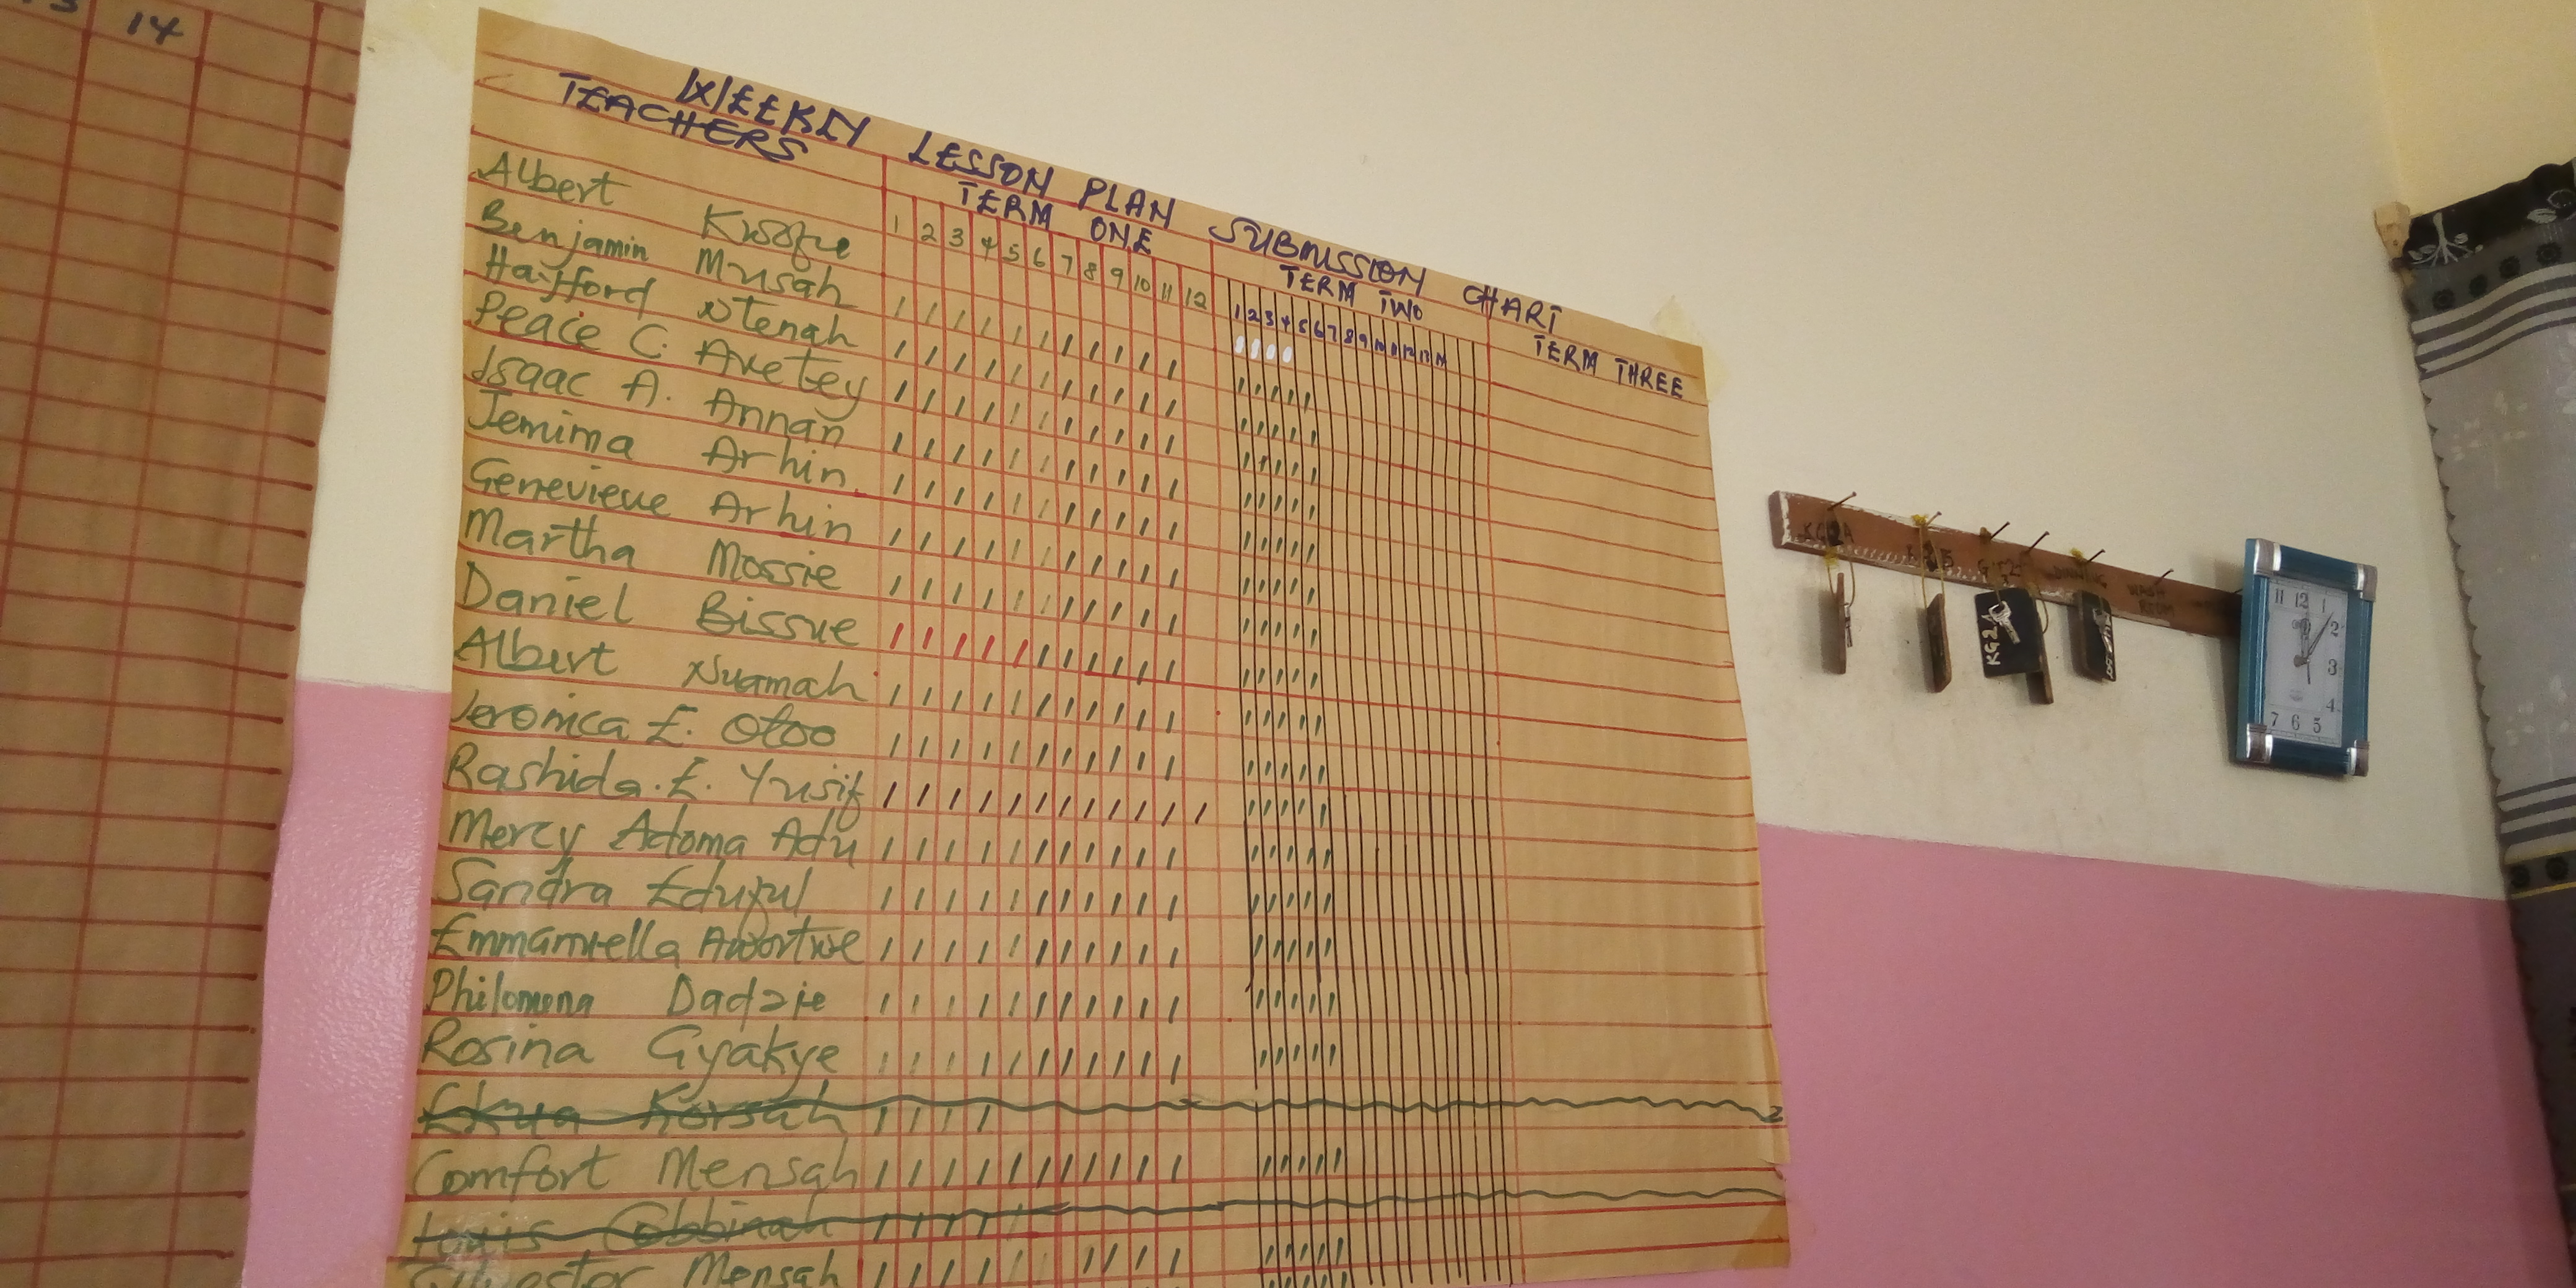 14
WEEKLY LESSON PLAN SUBMISSION CHART
TEACHERS TERM ONE TERM TWO TERM THREE
1 2 3 4 5 6 7 8 9 10 11 12
1 2 3 4 5 6 7 8 9 10 11 12 13 14
Albert Kwofie
Benjamin Musah
Hayfford Ntenah
Peace C. Axetey
Isaac A. Annan
Jemima Arhin
Genevieve Arhin
Martha Mossie
Daniel Bissue
Albert Nuamah
Veronica E. Otoo
Rashida. E. Yusif
Mercy Adoma Adu
Sandra Eduful
Emmanuella Awortwe
Philomena Dadzie
Rosina Gyakye
Ekua Korsah
Comfort Mensah
Louis Cobbinah
Sylvester Mensah
KG2A
DINNING
WASH ROOM
KG2A
11 12 1
2
3
4
7 6 5